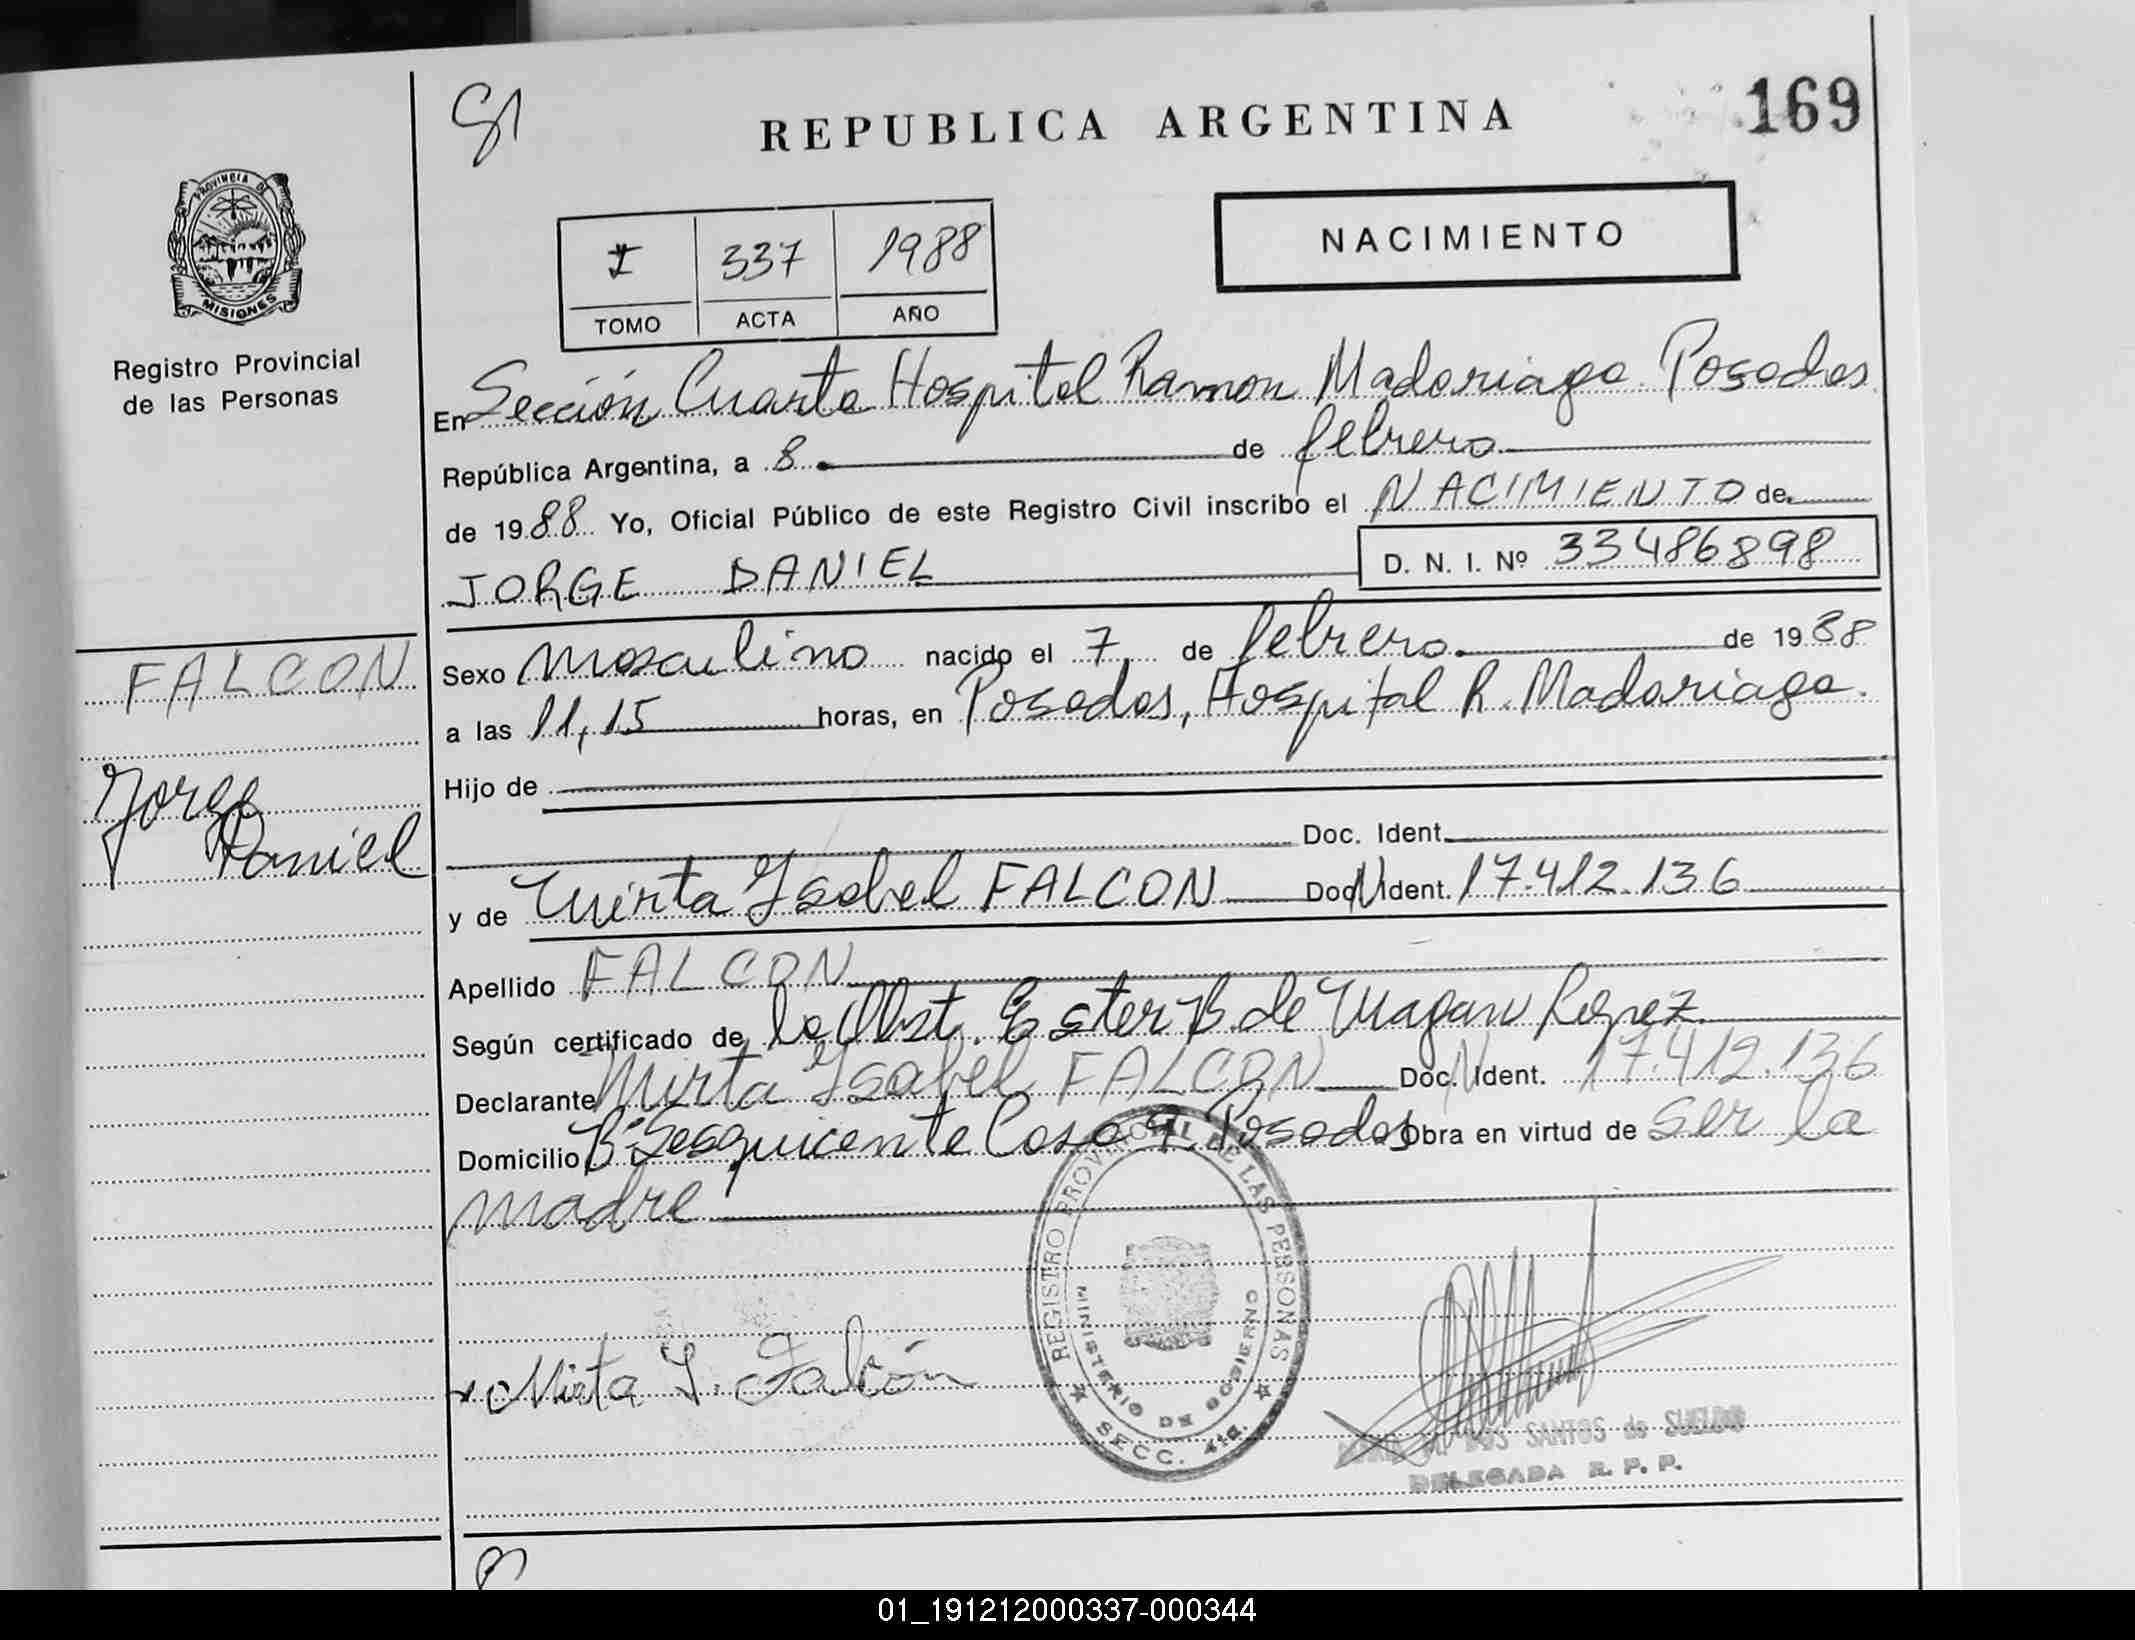 REPUBLICA ARGENTINA
169
PROVINCIA DE
MISIONES
Registro Provincial
de las Personas
I 337 1988
TOMO ACTA AÑO
NACIMIENTO
En Sección Cuarta Hospital Ramon Madariaga. Posadas
República Argentina, a 8 de febrero
de 1988 Yo, Oficial Público de este Registro Civil inscribo el NACIMIENTO de
JORGE DANIEL D. N. I. Nº 33486898
FALCON
Jorge
Daniel
Sexo masculino nacido el 7 de febrero de 1988
a las 11,15 horas, en Posadas, Hospital R. Madariaga.
Hijo de
Doc. Ident.
y de Mirta Isabel FALCON Doc. N Ident. 17.412.136
Apellido FALCON
Según certificado de la Obst. Ester B. de Lopez
Declarante Mirta Isabel FALCON Doc. N Ident. 17.412.136
Domicilio Bº Sesquicente Casa 9 Posadas Obra en virtud de ser la
madre
REGISTRO PROVINCIAL DE LAS PERSONAS
MINISTERIO DE GOBIERNO
SECC. 4ta.
Mirta I. Falcón
DOS SANTOS de SUELDO
DELEGADA R. P. P.
01_191212000337-000344